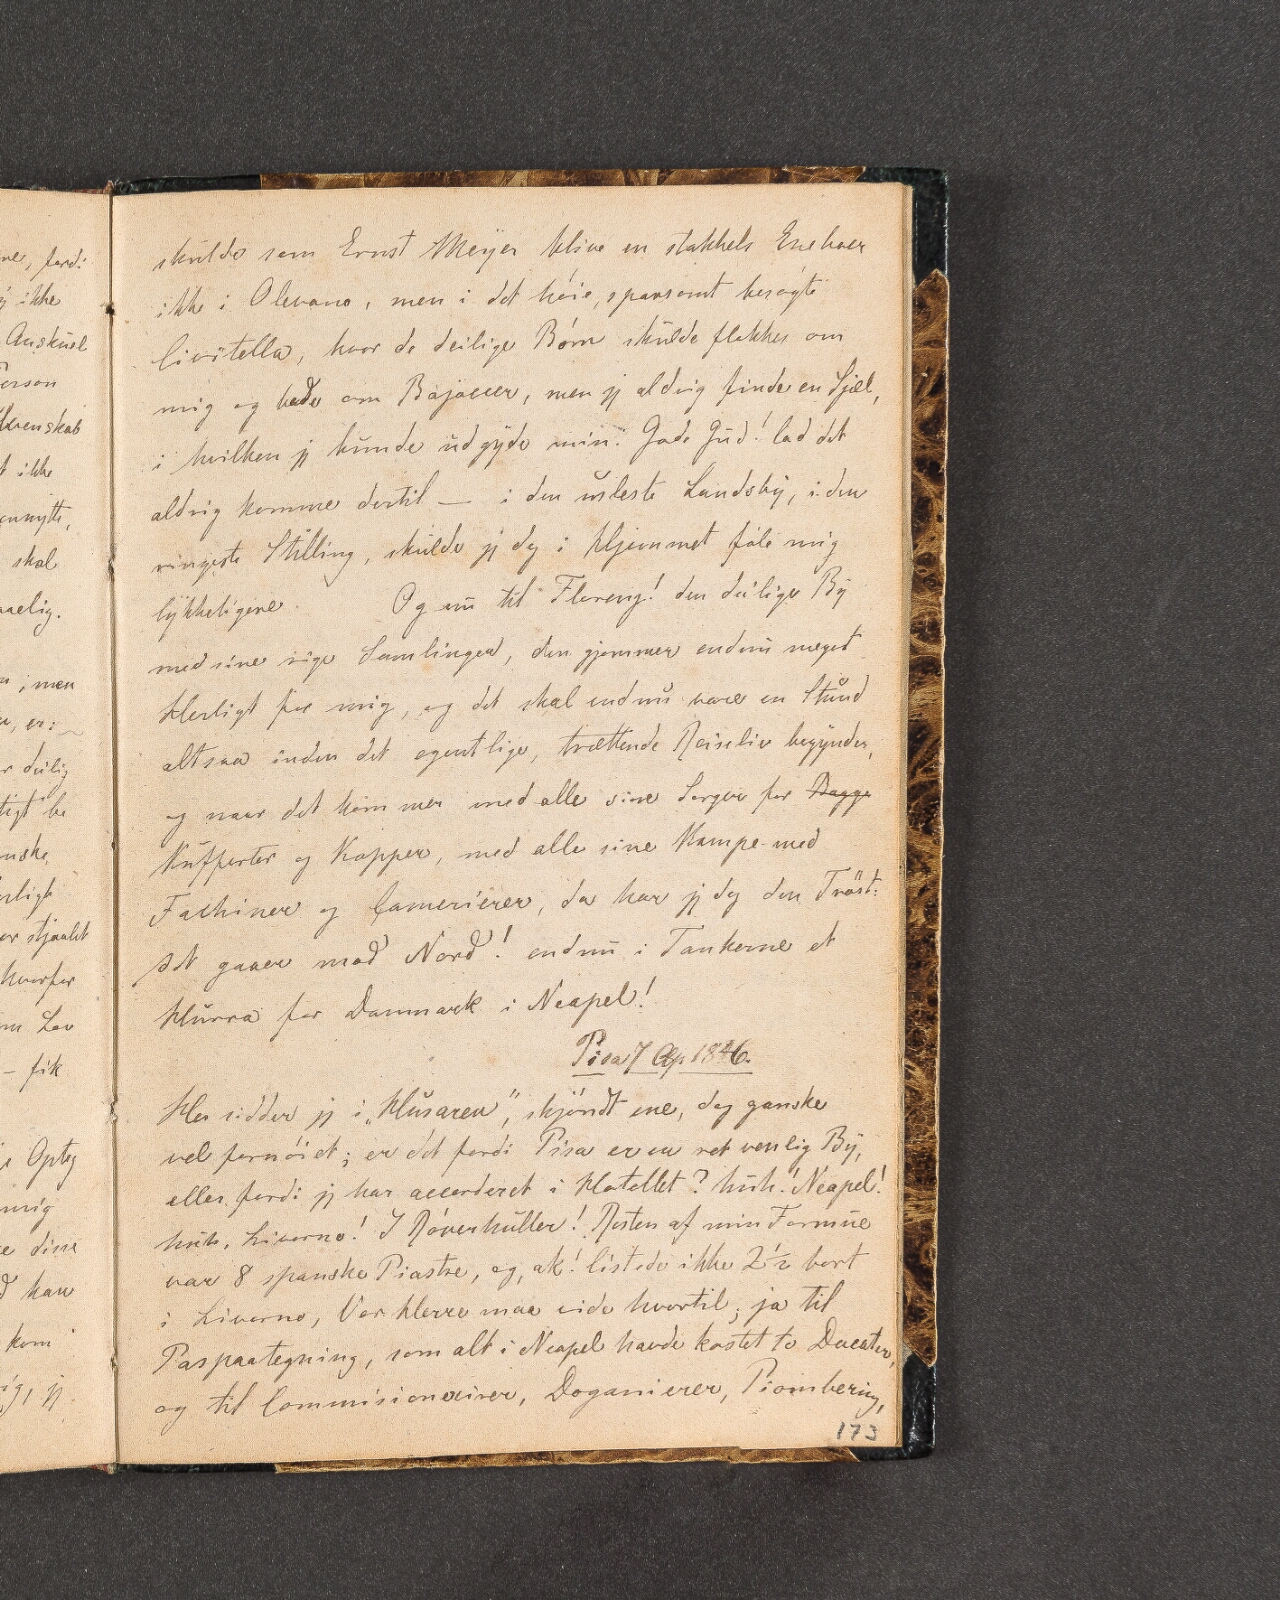 ne, fordi
ikke
Auskul
Person
kenskab
t ikke
ennytte,
skal
aelig.
, men
, er:
r deilig
tigt be
nske,
erligt
er stjaalet
hvorfor
Lov
– fik
Opteg
mig
e disse
kan
kom
ig, jj
skulde som Ernst Meyer blive en stakkels Eneboer
ikke i Olevano, men i det høie, sparsomt besøgte
Civitella, hvor de deilige Børn skulde flokkes om
mig og bede om Bajoccer, men jj aldrig finde en Sjæl,
i hvilken jj kunde udgyde min. Gode Gud! lad det
aldrig komme dertil — i den usleste Landsby, i den
ringeste Stilling, skulde jj dog i Hjemmet føle mig
lykkeligere. Og nu til Florenz! den deilige By
med sine rige Samlinger, den gjemmer endnu meget
Herligt for mig, og det skal endnu vare en Stund
altsaa inden det egentlige, trættende Reiseliv begynder,
og naar det kommer med alle sine Sorger for Bagge
Kufferter og Kapper, med alle sine Kampe med
Fachiner og Camerierer, da har jj dog den Trøst:
det gaaer mod Nord! endnu i Tankerne et
Hurra for Danmark i Neapel!
Pisa 7 Ap 1846.
Her sidder jj i „Husaren“, skjøndt ene, dog ganske
vel fornøiet; er det fordi Pisa er en ret venlig By,
eller fordi jj har accorderet i Hotellet? huh! Neapel!
huh, Livorno! I Røverhuller! Resten af min Formue
var 8 spanske Piastre, og, ak! listede ikke 2½ bort
i Livorno, Vor Herre maa vide hvortil; ja til
Paspaategning, som alt i Neapel havde kostet to Ducater,
og til Commisionærer, Doganierer, Piombering,
173